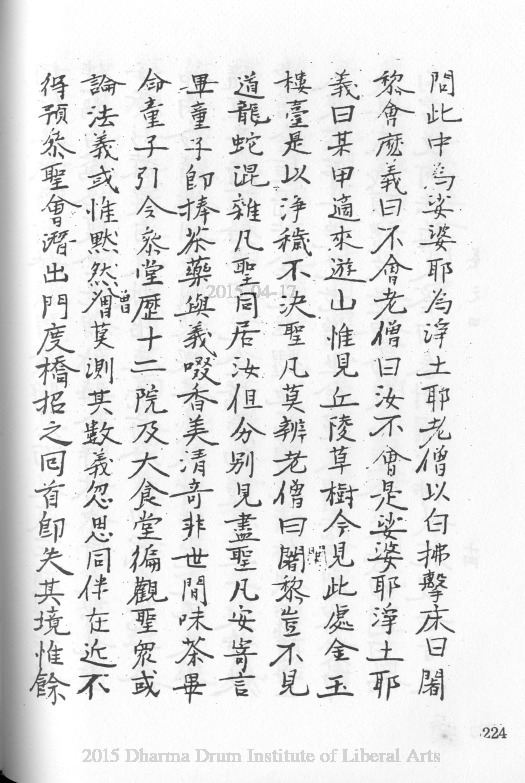 問此中為娑婆耶為淨土耶老僧以白拂擊床曰闍
黎會麼義曰不會老僧曰汝不會是娑婆耶淨土耶
義曰某甲適來遊山惟見丘陵草樹今見此處金玉
樓臺是以淨穢不決聖凡莫辨老僧曰闍黎豈不見
道龍蛇混雜凡聖同居汝但分別見盡聖凡安寄言
畢童子即捧茶藥與義啜香美清奇非世間味茶畢
命童子引令參堂歷十二院及大食堂徧觀聖眾或
論法義或惟默然僧莫測其數義忽思同伴在近不
得預參聖會潛出門度橋招之囘首即失其境惟餘
224
2015-04-17
2015 Dharma Drum Institute of Liberal Arts